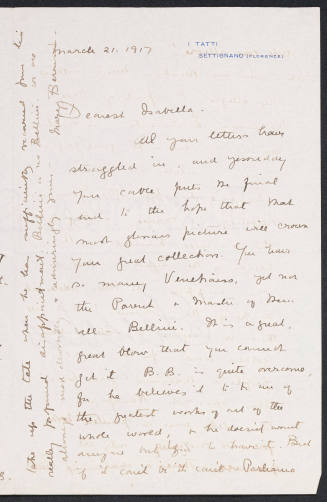 March 21. 1917
I TATTI
SETTIGNANO (FLORENCE)
Dearest Isabella.
All your letters have
straggled in, and yesterday
your cable puts the final
end to the hope that that
most glorious picture will crown
your great collection. You have
so many Venetians, yet not
the Parent & Master of them
all - Bellini. It is a great,
great blow that you cannot
get it. B. B. is quite overcome,
for he believes it to be one of
the greatest works of art of the
whole world, & he doesn't want
anyone but you to have it. But
if it can't be it can't.
take up the tale when he has sufficiently
really profound disappointment. Bellini or no Bellini, or no
always most devotedly & admiringly yours - Mary Berenson